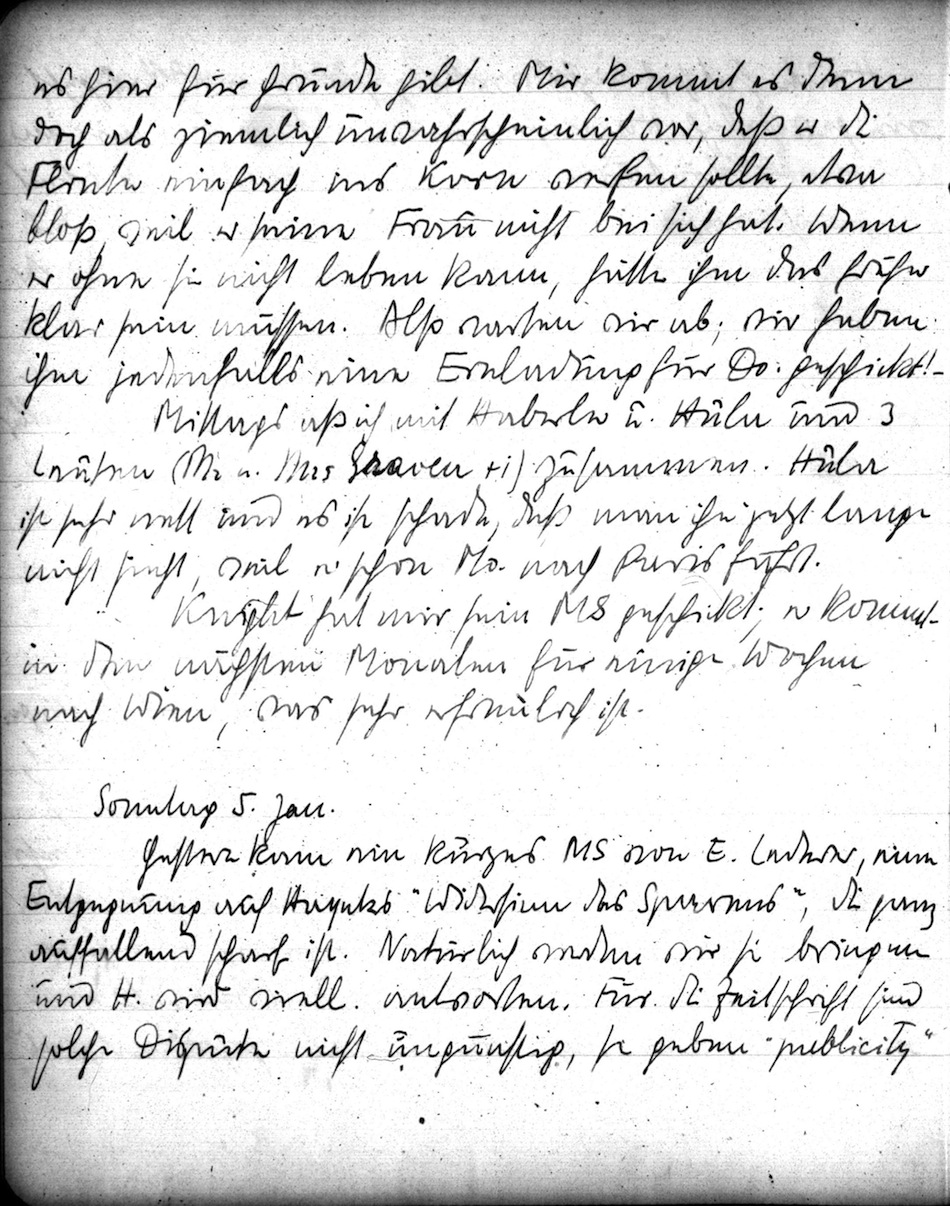 es hier für Gründe gibt. Mir kommt es denn
doch als ziemlich unwahrscheinlich vor, daß er die
Flinte einfach ins Korn werfen sollte, etwa
bloß, weil er seine Frau nicht bei sich hat. Wenn
er ohne sie nicht leben kann, hätte ihm das früher
klar sein müssen. Also warten wir ab; wir haben
ihm jedenfalls eine Einladung für Do. geschickt! –
Mittags aß ich mit Haberler u. Hula und 3
Leuten (Mr. u. Mrs zusammen. Hula
ist sehr nett und es ist schade, daß man ihn jetzt lange
nicht sieht, weil er schon Mo. nach Paris fährt.
Knight hat mir sein MS geschickt; er kommt
in den nächsten Monaten für einige Wochen
nach Wien, was sehr erfreulich ist.
Sonntag 5. Jan.
Gestern kam ein kurzes MS von E. Lederer, eine
Entgegnung auf Hayeks "Widersinn des Sparens", die ganz
auffallend scharf ist. Natürlich werden wir sie bringen
und H. wird evtl. antworten. Für die Zeitschrift sind
solche Dispute nicht ungünstig, sie geben "publicity"